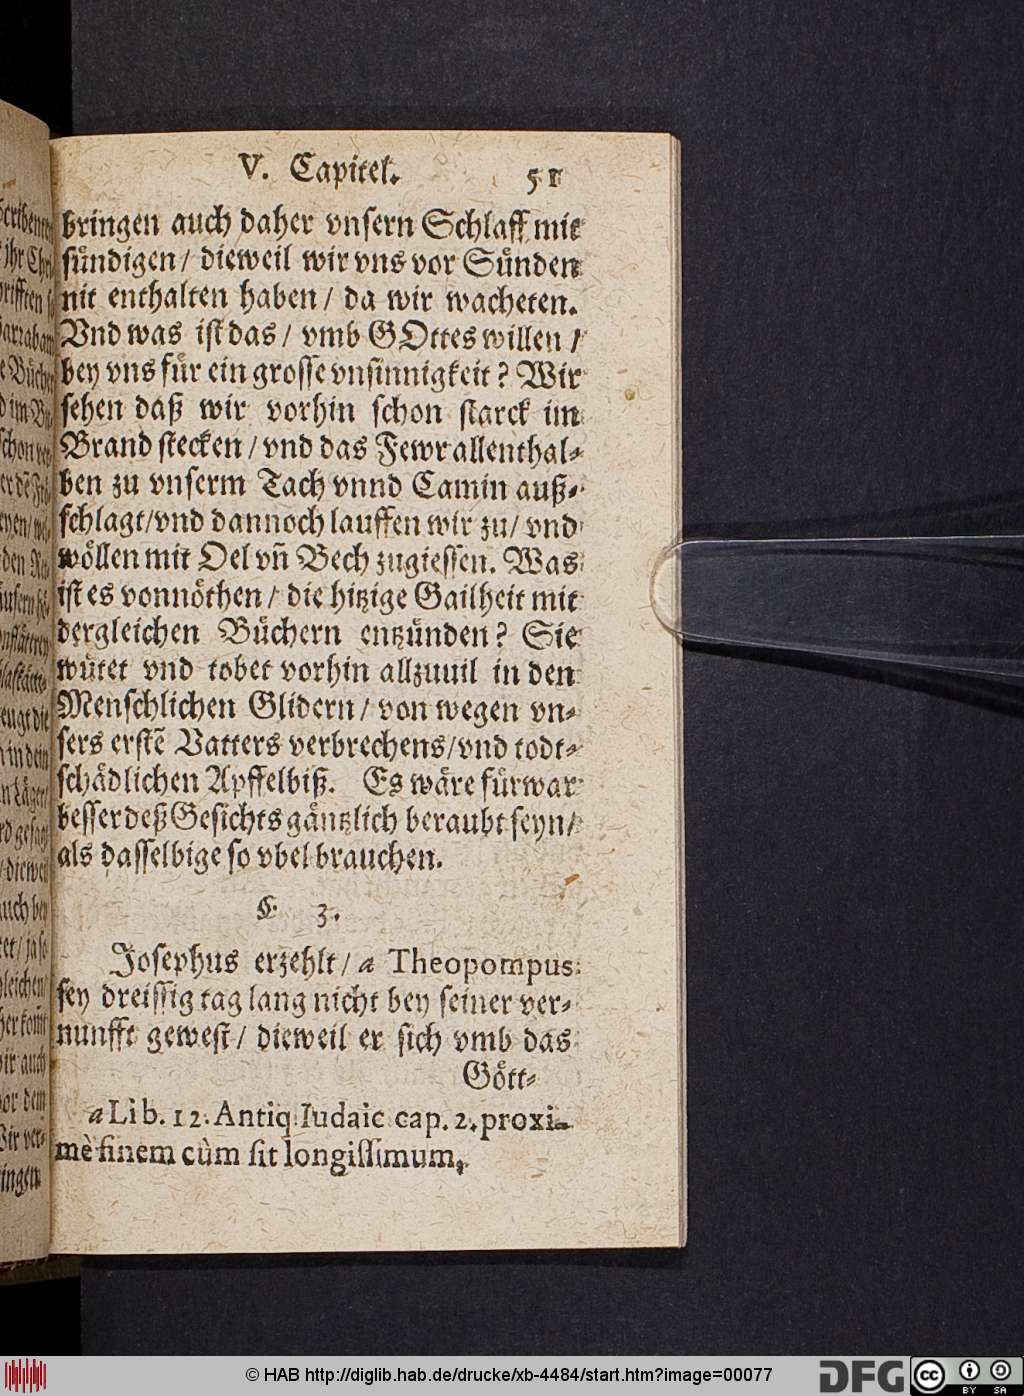 V. Capitel. 51
bringen auch daher vnsern Schlaff mit
sündigen / dieweil wir vns vor Sünden
nit enthalten haben / da wir wacheten.
Vnd was ist das / vmb GOttes willen /
bey vns für ein grosse vnsinnigkeit? Wir
sehen daß wir vorhin schon starck im
Brand stecken / vnd das Fewr allenthal-
ben zu vnserm Tach vnnd Camin auß-
schlagt/vnd dannoch lauffen wir zu/ vnd
wöllen mit Oel vñ Bech zugiessen. Was
ist es vonnöthen / die hitzige Gailheit mit
dergleichen Büchern entzünden? Sie
wütet vnd tobet vorhin allzuuil in den
Menschlichen Glidern / von wegen vn-
sers erstẽ Vatters verbrechens/vnd todt-
schädlichen Apffelbiß. Es wäre fürwar
besser deß Gesichts gäntzlich beraubt seyn/
als dasselbige so vbel brauchen.
§. 3.
Josephus erzehlt / a Theopompus
sey dreissig tag lang nicht bey seiner ver-
nunfft gewest / dieweil er sich vmb das
Gött-
a Lib. 12. Antiq Iudaic cap. 2. proxi-
mè finem cùm sit longissimum.
© HAB http://diglib.hab.de/drucke/xb-4484/start.htm?image=00077
DFG
cc BY SA